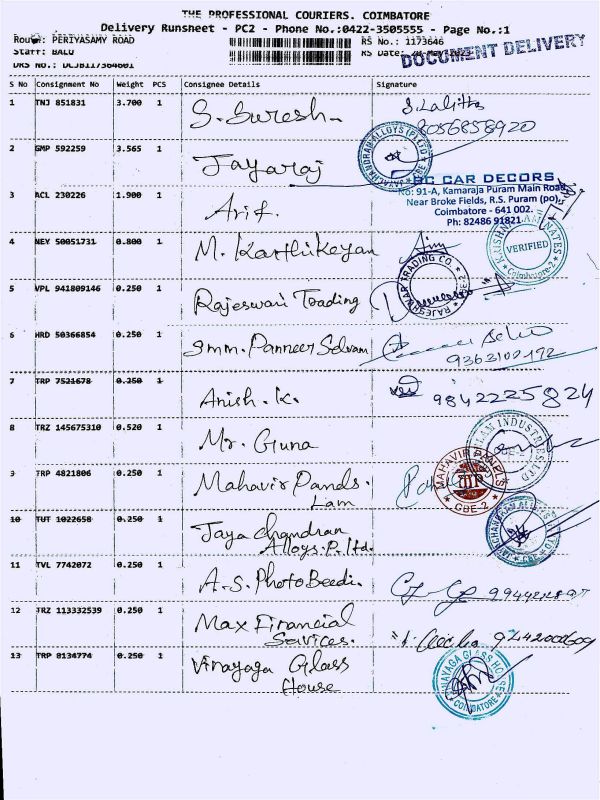 THE PROFESSIONAL COURIERS. COIMBATORE
Delivery Runsheet - PC2 - Phone No.:0422-3505555 - Page No.:1
Route: PERIYASAMY ROAD
RS No.: 1173646
Staff: BALU
RS Date: May/2023
DOCUMENT DELIVERY
DRS No.: DLJB117364601
S No Consignment No Weight PCS Consignee Details Signature
1 TNJ 851831 3.700 1 S. Suresh S. Lalitha
8056858920
2 GMP 592259 3.565 1 Jayaraj
JAYACHANDRAN ALLOYS (P) LTD
CBE
CAR DECORS
No: 91-A, Kamaraja Puram Main Road,
Near Broke Fields, R.S. Puram (po),
Coimbatore - 641 002.
Ph: 82486 91821
3 ACL 230226 1.900 1 Arif.
4 NEY 50051731 0.800 1 M. Karthikeyan
VERIFIED
Coimbatore-2
5 VPL 941809146 0.250 1 Rajeswari Trading
RAJESHWARI TRADING CO.
CBE-2
6 HRD 50366854 0.250 1 Smm. Panneer Selvam
9363100192
7 TRP 7521678 0.250 1 Anish. K. 9842225824
8 TRZ 145675310 0.520 1 Mr. Guna
INDUSTRIES LTD
9 TRP 4821806 0.250 1 Mahavir Panels.
Lam
MAHAVIR PANELS
CBE-2
10 TUT 1022658 0.250 1 Jaya Chandran
Alloys. P. ltd.
JAYACHANDRAN ALLOYS
CBE
11 TVL 7742072 0.250 1 A.S. Photo Beedi.
12 TRZ 113332539 0.250 1 Max Financial
Services.
9442000609
13 TRP 8134774 0.250 1 Vinayaga Glass
House
VINAYAGA GLASS HOUSE
COIMBATORE